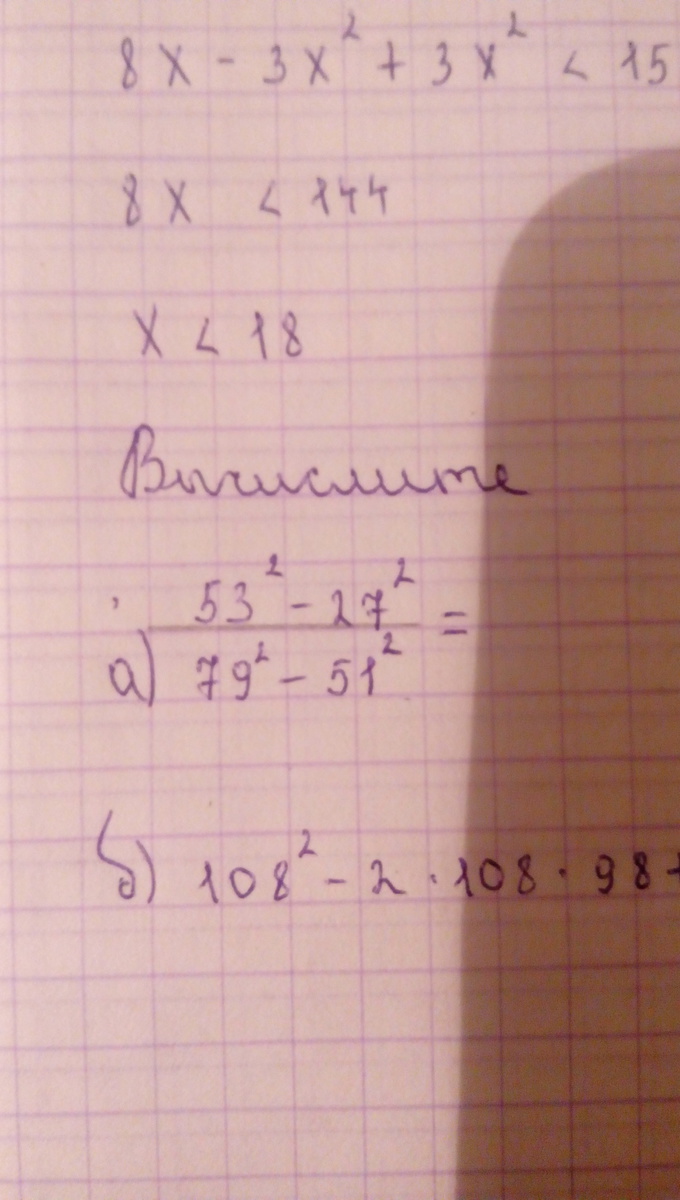 8x - 3x² + 3x² < 15
8x < 144
x < 18
Вычислите
а) 53² - 27² / 79² - 51² =
б) 108² - 2 · 108 · 98 +